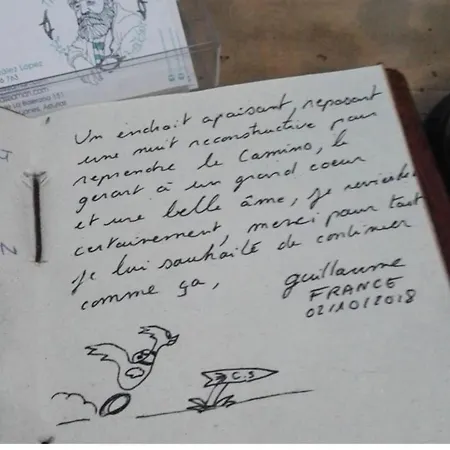 Un endroit apaisant, reposant
une nuit reconstructive pour
reprendre le Camino, le
gerant à un grand coeur
et une belle âme, je reviendrai
certainement, merci pour tout
je lui souhaite de continuer
comme ça,
guillaume
FRANCE
02/10/2018
C.S